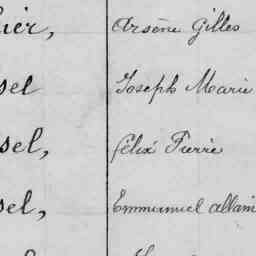 ier, Arsène Gilles
sel Joseph Marie
sel, félix Pierre
sel, Emmanuel allain